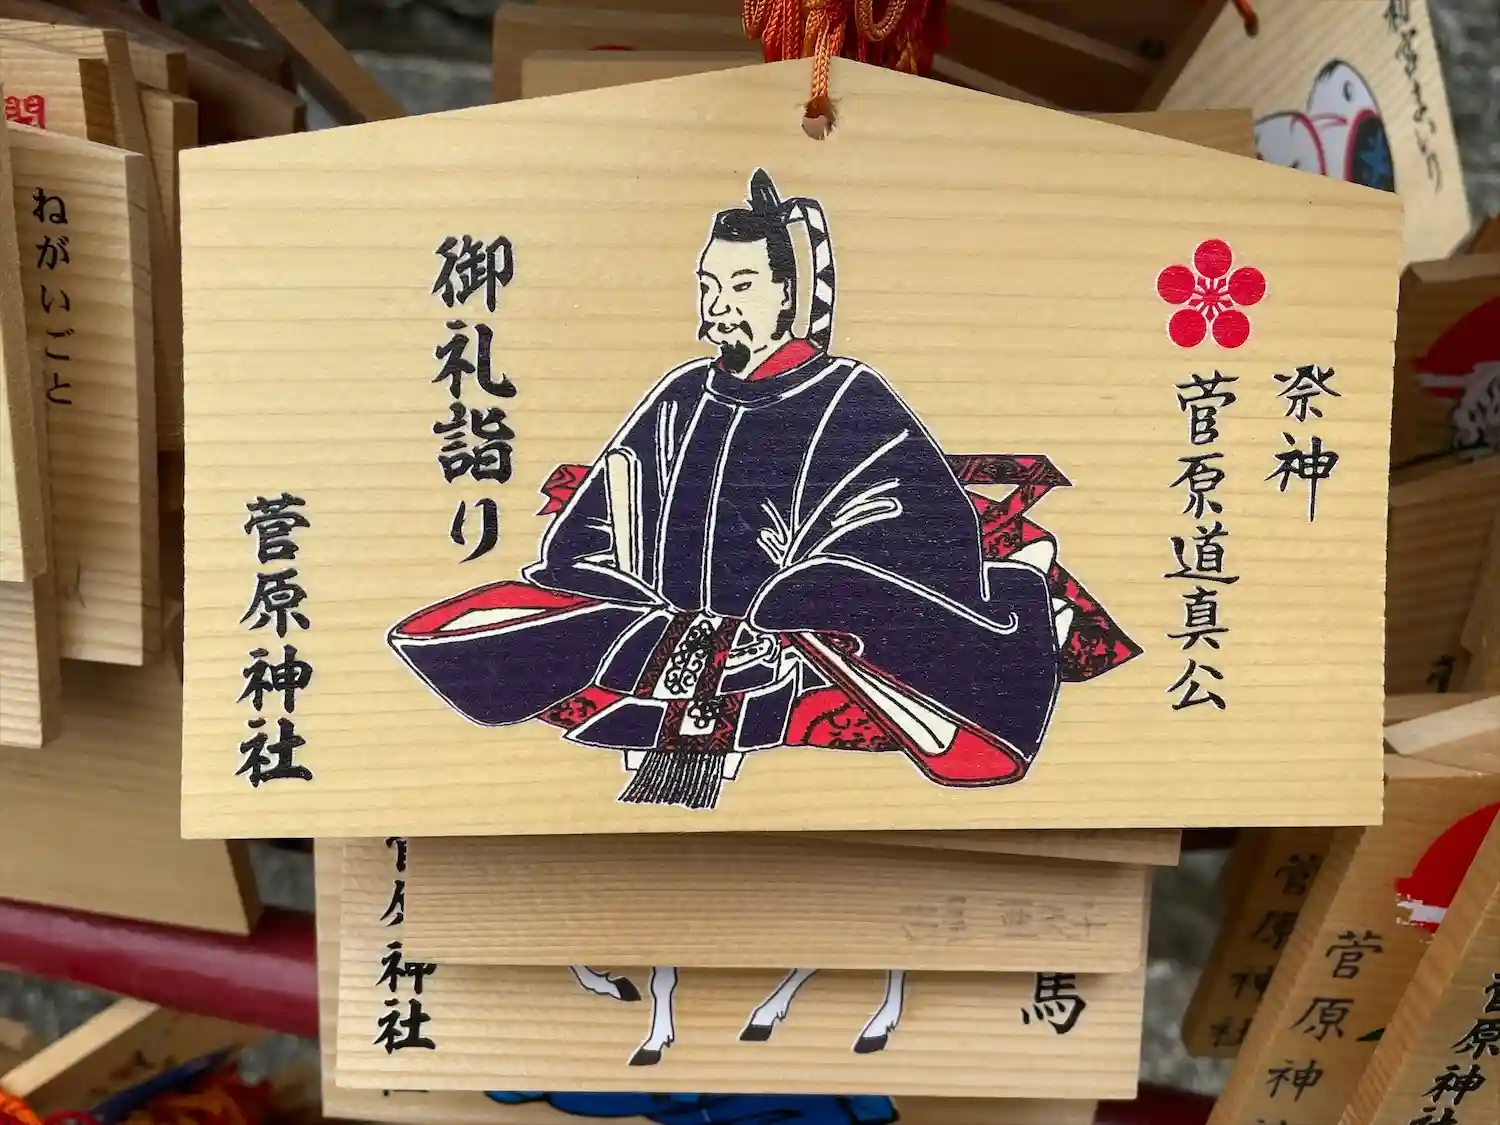 祭神
菅原道真公
御礼詣り
菅原神社
ねがいごと
神社
馬
菅原神社
菅原神
原神社